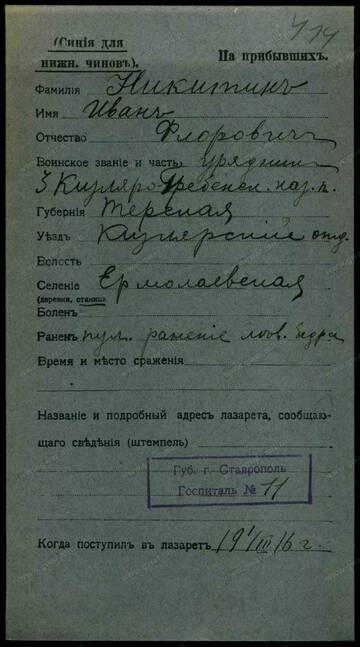 414
(Синія для
нижн. чиновъ).
На прибывшихъ.
Фамилія Никитинъ
Имя Иванъ
Отчество Флоровичъ
Воинское званіе и часть урядникъ
3 Кизляро-Гребенск. каз. п.
Губернія Терская
Уѣздъ Кизлярскій отд.
Волость
Селеніе Ермолаевская
(деревня, станица)
Боленъ
Раненъ пул. раненіе лѣв. бедра
Время и мѣсто сраженія
Названіе и подробный адресъ лазарета, сообщаю-
щаго свѣдѣнія (штемпель)
Губ. г. Ставрополь
Госпиталь № 11
Когда поступилъ въ лазаретъ 19 1/III 16 г.